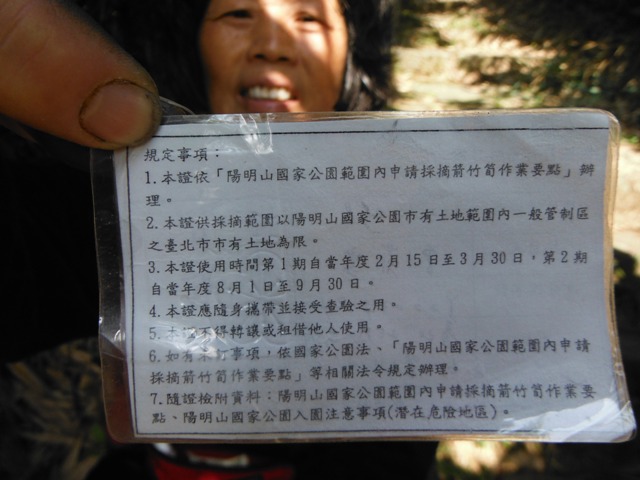 規定事項：
1.本證依「陽明山國家公園範圍內申請採摘箭竹筍作業要點」辦
理。
2.本證供採摘範圍以陽明山國家公園市有土地範圍內一般管制區
之臺北市市有土地為限。
3.本證使用時間第1期自當年度2月15日至3月30日，第2期
自當年度8月1日至9月30日。
4.本證應隨身攜帶並接受查驗之用。
5.本證不得轉讓或租借他人使用。
6.如有未訂事項，依國家公園法、「陽明山國家公園範圍內申請
採摘箭竹筍作業要點」等相關法令規定辦理。
7.隨證檢附資料：陽明山國家公園範圍內申請採摘箭竹筍作業要
點、陽明山國家公園入園注意事項(潛在危險地區)。